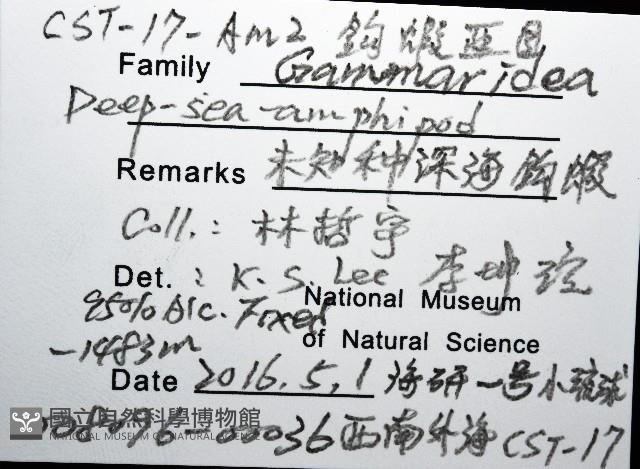 CST-17-Am2 鈎蝦亞目
Family Gammaridea
Deep-sea-amphipod
Remarks 未知种深海鈎蝦
Coll.: 林哲宇
Det.: K. S. Lee 李坤瑄
95% Alc. Fixed National Museum
-1483m of Natural Science
Date 2016.5,1 海研一号小琉球
國立自然科學博物館
NATIONAL MUSEUM OF NATURAL SCIENCE
036西南外海CST-17